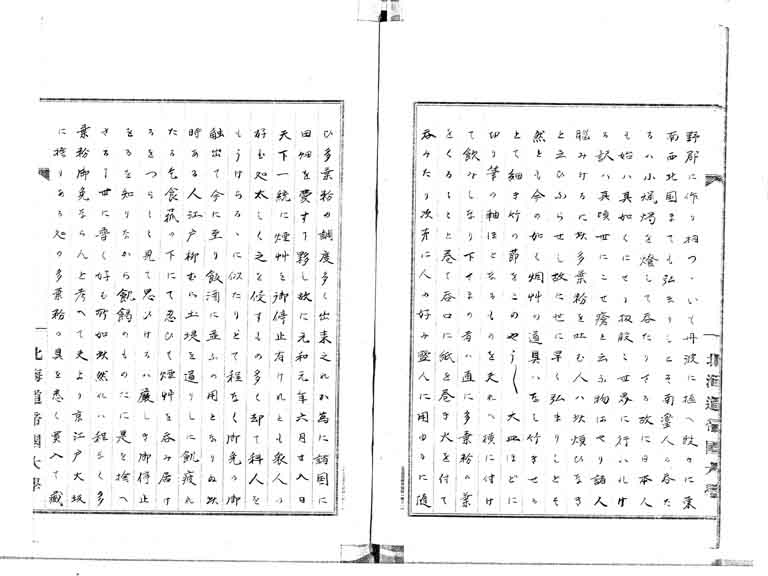 野郡に作り相つゝいて丹波に植へ段々に東
南西北国までも弘まりしとそ南蛮人の呑た
るハ小蝋燭を燈して呑たりさる故に日本人
も始ハ具如くにせり扨殿々世界に行ハれけ
る訳ハ其頃世にこせ瘡と云ふ物はせり諸人
脳みけるに此多葉粉を吐む人ハ此煩ひなき
と云ひふらせし故に世に早く弘まりしとそ
然とも今の如く烟艸の道具ハなし竹ませる
とて細き竹の節をこめやう〳〵大皿ほどに
切り筆の軸ほとなるものを夫れへ横に付け
て飲みしなり下ざまの者ハ直に多葉粉の葉
をくる〳〵と巻て呑口に紙を巻き火を付て
呑みたり次第に人の好み盛人に用ゆるに随
ひ多葉粉の調度多く出来これか為に諸国に
田畑を費す事夥し故に元和元年六月廿八日
天下一統に煙艸を御停止有けれとも衆人の
好む処太しく之を侵すもの多く却て科人を
もうけらるゝに似たりとて程なく御免の御
触出て今に至り飯酒に並ふの用となりぬ此
時ある人江戸柳むら土堤を通りしに飢疲れ
たる乞食菰の下にて忍ひて煙艸を呑み居け
るをつら〳〵見て思ひけるハ厳しき御停止
なるを知りなから飢餲のものたに是を捨へ
さる事世に普く好も所如此然れハ程なく多
葉粉御免ならんと考へて夫より京江戸大坂
に捨りある処の多葉粉の具を悉く買入て蔵
北海道帝国大学